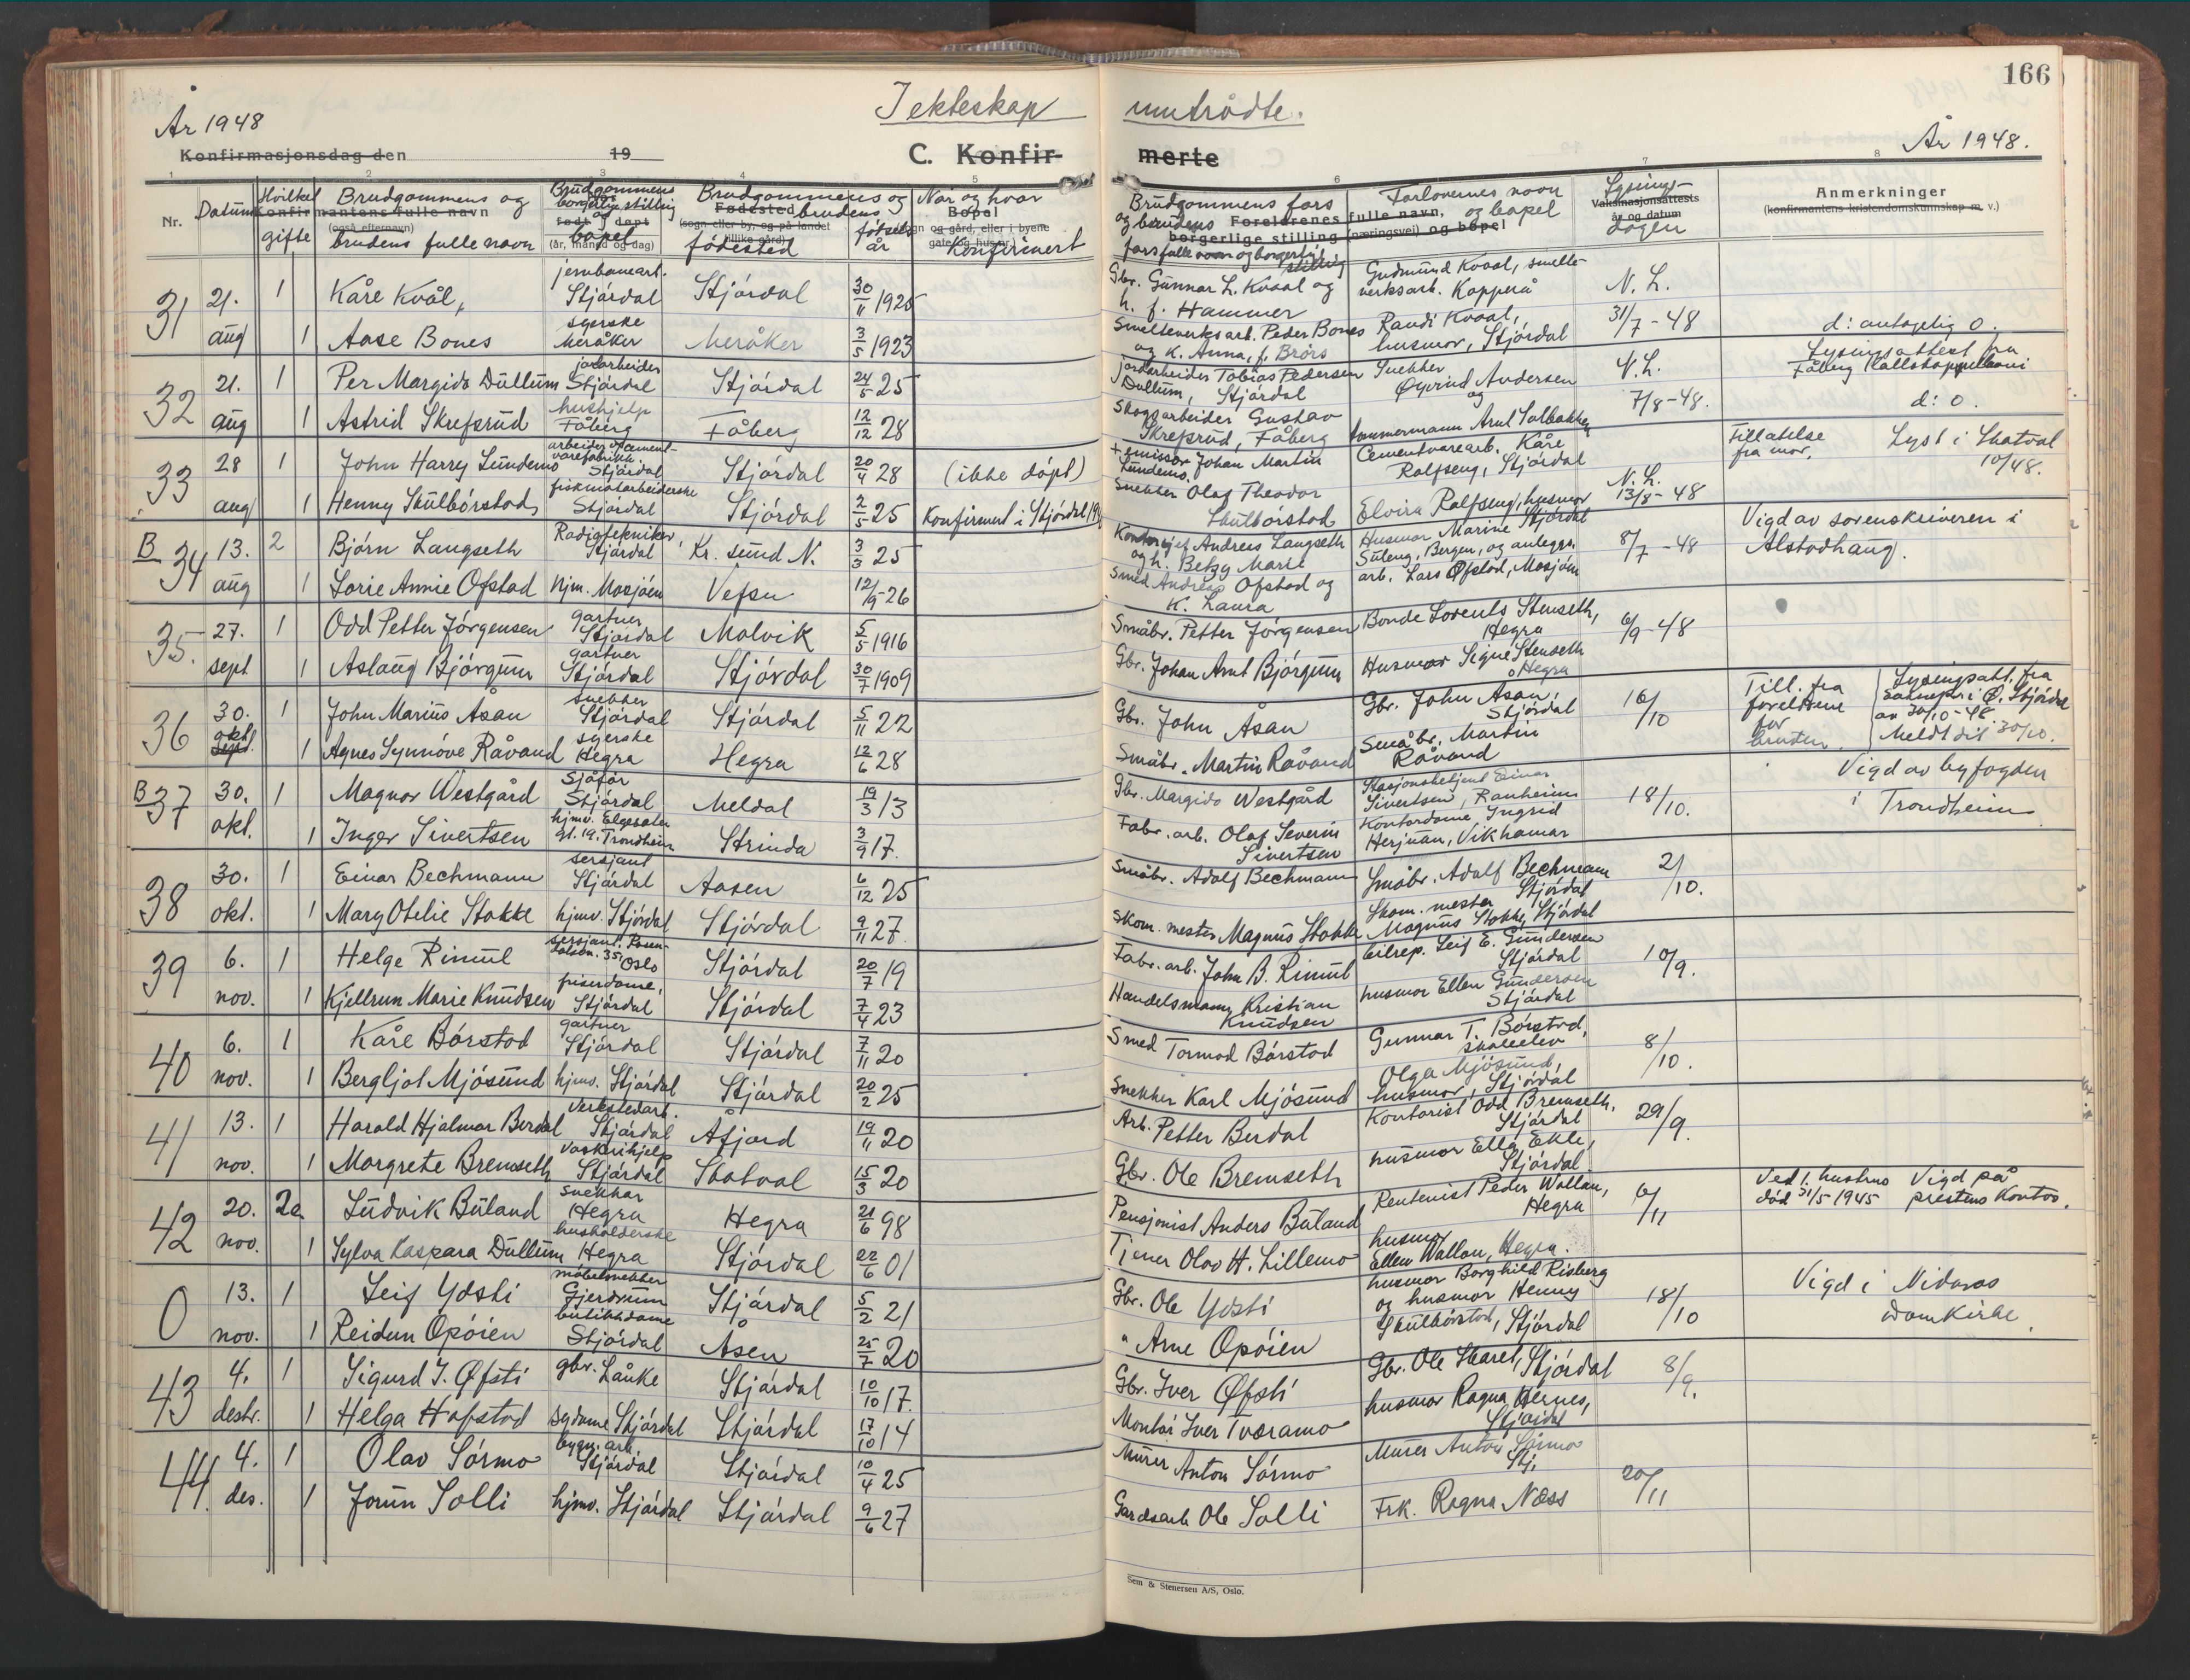 166
I ekteskap inntrådte.
År 1948
År 1948.
Konfirmasjonsdag den 19
C. Konfirmerte
1 2 3 4 5 6 7 8
Nr. Datum Hvilket gifte
Brudgommens og brudens fulle navn
Konfirmantens fulle navn
(også etternavn)
Brudgommens borgerlige stilling og bopel
født døpt
(år, måned og dag)
Brudgommens og brudens fødested fødselsår
Fødested
(sogn eller by, og på landet tillike gård)
Når og hvor konfirmert
Bopel
(sogn og gård, eller i byene gate og hus nr.)
Brudgommens fars og brudens fars fulle navn og borgerlig stilling
Foreldrenes fulle navn,
borgerlige stilling (næringsvei) og bopel
Forlovernes navn og bopel
Lysingsdagen
Vaksinasjonsattests
år og datum
Anmerkninger
(konfirmantens kristendomskunnskap m. v.)
31 21. aug 1 Kåre Kvål, jernbanearb. Stjørdal Stjørdal 30/11 1925 Gbr. Gunnar L. Kvaal og h. f. Hammer Gudmund Kvaal, smelteverksarb. Kopperå N. L.
1 Aase Bones syerske Meråker Meråker 3/5 1923 Smelteverksarb. Peder Bones og K. Anna, f. Brørs Randi Kvaal, husmor, Stjørdal 31/7-48 d: antagelig 0.
32 21. aug 1 Per Margido Dullum jordarbeider Stjørdal Stjørdal 24/5 25 jordarbeider Tobias Pedersen Dullum, Stjørdal Snekker Øyvind Andersen og N.L. Lysingsattest fra Fåberg
1 Astrid Skrefsrud hushjelp Fåberg Fåberg 12/12 28 Skogsarbeider Gustav Skrefsrud, Fåberg tømmermann Arnt Solbakken 7/8-48. d: 0.
33 28 aug 1 John Harry Lundemo arbeider v/sementvarefabrikk Stjørdal Stjørdal 20/4 28 (ikke døpt) + emissær Johan Martin Lundemo. Cementvarearb. Kåre Ralfseng, Stjørdal N. L. Tillatelse fra mor. Lyst i Skatval 10/48.
1 Henny Skulbørstad fiskmatarbeiderske Stjørdal Stjørdal 2/5 25 Konfirmert i Stjørdal Snekker Olaf Theodor Skulbørstad Elvira Ralfseng, husmor Stjørdal 13/8-48
B 34 13. aug 2 Bjørn Langseth Radiotekniker, Stjørdal Kr. sund N. 3/3 25 Kontorsjef Andreas Langseth og h. Betzy Marie Husmor Marine Suleng, Bergen, og anleggs. 8/7-48 Vigd av sorenskriveren i Alstadhaug.
1 Lorie Annie Ofstad hjm. Mosjøen Vefsn 12/9-26 Smed Andreas Ofstad og K. Laura arb. Lars Øfstad, Mosjøen
35. 27. sept 1 Odd Petter Jørgensen gartner Stjørdal Malvik 5/5 1916 Småbr. Petter Jørgensen Bonde Lorents Stenseth, Hegra 6/9-48
1 Aslaug Bjørgum gartner Stjørdal Stjørdal 30/7 1909 Gbr. Johan Arnt Bjørgum Husmor Signe Stenseth Hegra
36 30. okt sept. 1 John Marius Åsan snekker Stjørdal Stjørdal 5/11 22 Gbr. John Åsan Gbr. John Åsan, Stjørdal 16/10 Till. fra foreldrene for bruden. Lysingsatt. fra i Ø. Stjørdal av 30/10-48. Meldt dit 30/10.
1 Agnes Synnøve Råvand syerske Hegra Hegra 12/6 28 Småbr. Martin Råvand Småbr. Martin Råvand
B 37 30. okt. 1 Magnar Westgård Sjåfør Stjørdal Meldal 19/3 13 Gbr. Margido Westgård Stasjonsbetjent Einar Sivertsen, Ranheim 18/10. Vigd av byfogden i Trondheim
1 Inger Sivertsen hjmv. Elgesetergt. 19. Trondheim Strinda 3/9 17. Fabr. arb. Olaf Severin Sivertsen Kontordame Ingrid Herjuan, Vikhamar
38 30. okt. 1 Einar Bechmann sersjant Stjørdal Aasen 6/12 25 Småbr. Adolf Bechmann Småbr. Adolf Bechmann Stjørdal 2/10.
1 Mary Otelie Stokke hjmv. Stjørdal Stjørdal 9/11 27. Skom. mester Magnus Stokke Skom. mester Magnus Stokke, Stjørdal
39 6. nov. 1 Helge Rimul sersjant. 35, Oslo Stjørdal 20/7 19 Fabr. arb. John B. Rimul bilrep. Leif E. Gundersen Stjørdal 10/9.
1 Kjellrun Marie Knudsen friserdame, Stjørdal Stjørdal 7/4 23 Handelsmann Kristian Knudsen husmor Ellen Gundersen Stjørdal
40 6. nov. 1 Kåre Børstad gartner Stjørdal Stjørdal 7/11 20 Smed Tormod Børstad Gunnar T. Børstad, skoleelev 8/10.
1 Bergljot Mjøsund hjmv. Stjørdal Stjørdal 20/2 25 Snekker Karl Mjøsund Olga Mjøsund, husmor, Stjørdal
41 13. nov. 1 Harald Hjalmar Berdal Verkstedarb. Stjørdal Åfjord 19/11 20 Arb. Petter Berdal Kontorist Odd Bremseth, Stjørdal 29/9.
1 Margrete Bremseth Vaskerihjelp Stjørdal Skatval 15/3 20 Gbr. Ole Bremseth husmor Ella Ekle, Stjørdal
42 20. nov. 2e Ludvik Buland snekker Hegra Hegra 21/6 98 Pensjonist Anders Buland Rentenist Peder Wollan, Hegra 6/11 Ved 1. hustrus død 31/5 1945 Vigd på prestens kontor.
1 Sylva Kaspara Dullum husholderske Hegra Stjørdal 22/6 01 Tjener Olav H. Lillemo husmor Ellen Wollan, Hegra.
0 13. nov. 1 Leif Ydsti møbelsnekker Gjerdrum Stjørdal 5/2 21 Gbr. Ole Ydsti husmor Borghild Risberg og husmor Henny Skulbørstad, Stjørdal 18/10 Vigd i Nidaros domkirke.
1 Reidun Opøien butikkdame Stjørdal Åsen 25/7 20 " Arne Opøien
43 4. desbr. 1 Sigurd I. Øfsti gbr. Lånke Stjørdal 10/10 17. Gbr. Iver Øfsti Gbr. Ole Skaret, Stjørdal 8/9.
1 Helga Hofstad sydame Stjørdal Stjørdal 17/10 14 Montør Iver Tværamo husmor Ragna Hernes, Stjørdal
44. 4. des. 1 Olav Sørmo bygn. arb. Stjørdal Stjørdal 10/4 25 Murer Anton Sørmo Murer Anton Sørmo Stj. 20/11
1 Jorun Solli hjmv. Stjørdal Stjørdal 9/6 27 Gardsarb. Ole Solli Frk. Ragna Næss
Sem & Stenersen A/S, Oslo.